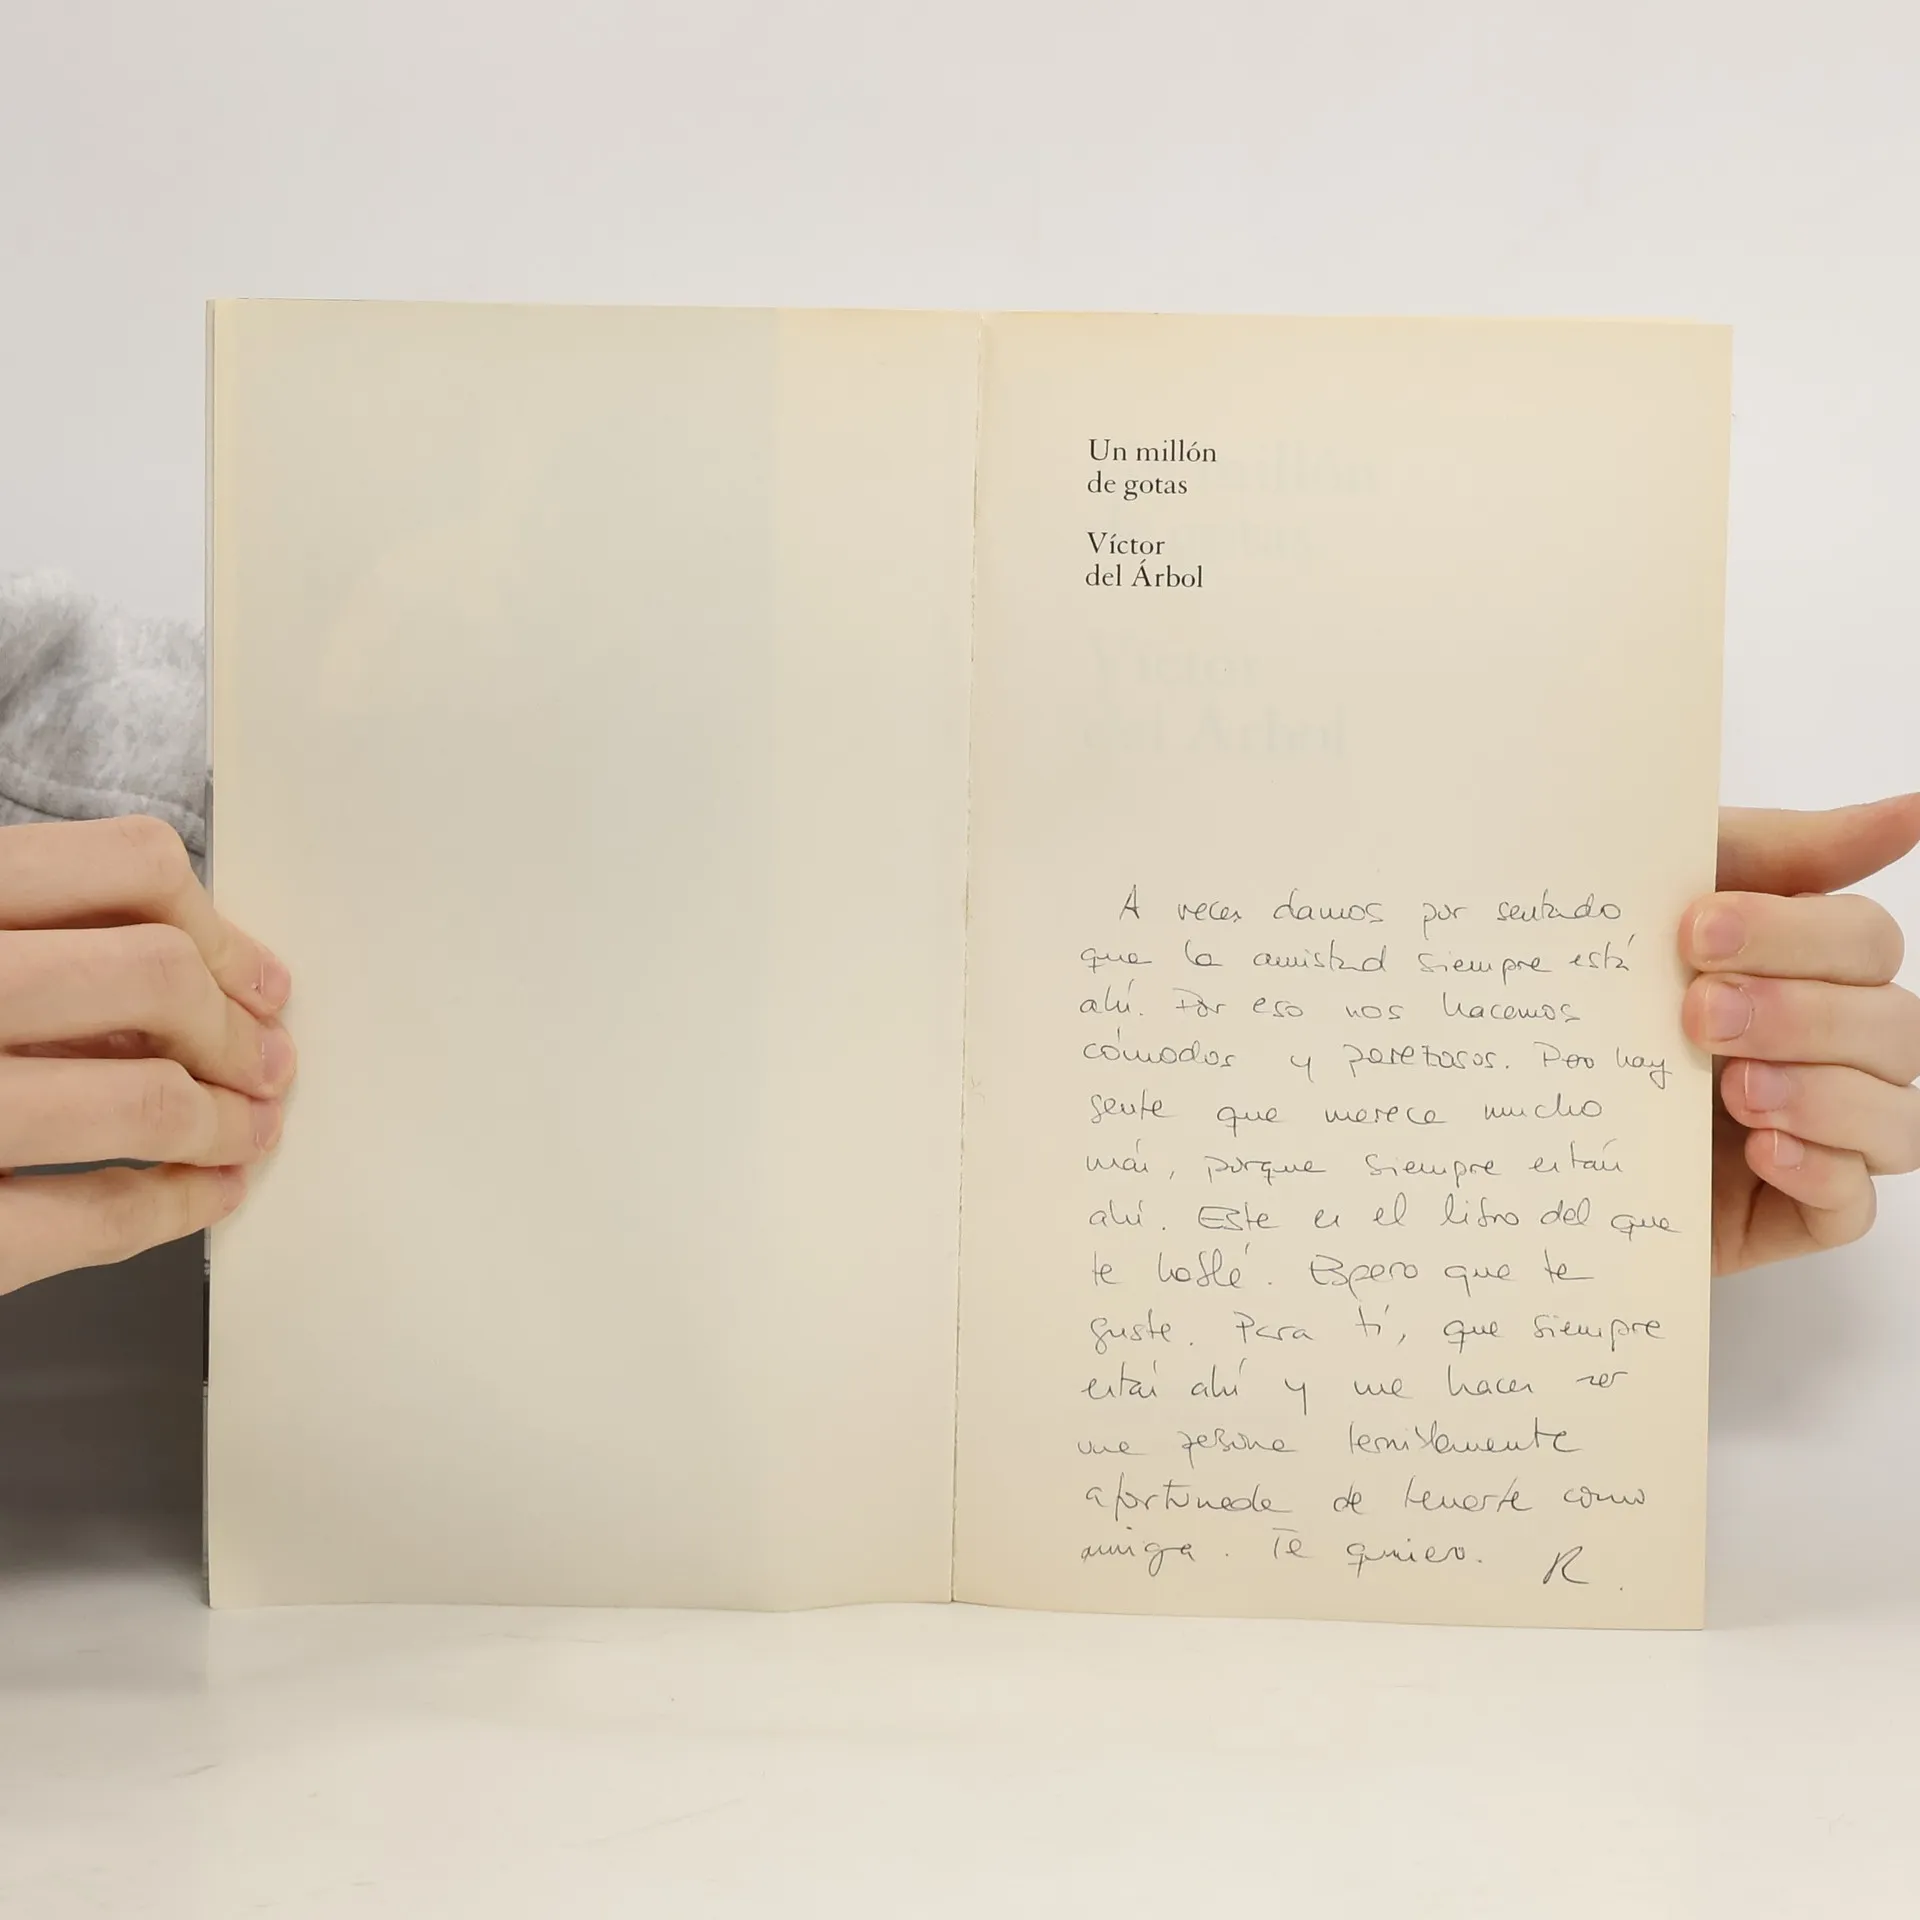 Un millón
de gotas
Víctor
del Árbol
A veces damos por sentado
que la amistad siempre está
ahí. Por eso nos hacemos
cómodos y perezosos. Pero hay
gente que merece mucho
más, porque siempre están
ahí. Este es el libro del que
te hablé. Espero que te
guste. Para tí, que siempre
estás ahí y me haces ser
una persona terriblemente
afortunada de tenerte como
amiga. Te quiero. R.